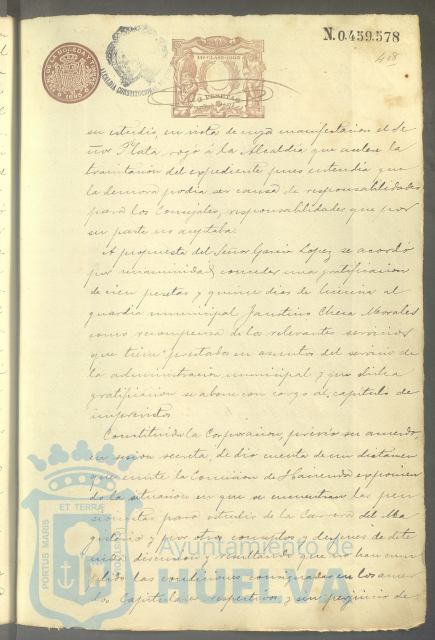 N.0.459.578
418
11ª CLASE-1895
2 PESETAS
ALCALDIA CONSTITUCIONAL
su estudio, en vista de cuya manifestacion el Se
ñor Plata rogó á la Alcaldia que active la
tramitacion del expediente pues entendia que
la demora podia ser causa de responsabilidades
para los Concejales, responsabilidades que por
su parte no aceptaba.
A propuesta del Señor Garcia Lopez se acordó
por unanimidad conceder una gratificacion
de cien pesetas y quince dias de licencia al
guardia municipal Faustino Chera Morales
como recompensa de los relevantes servicios
que tiene prestados en asuntos del servicio de
la administracion municipal y que dicha
gratificacion se abone con cargo al capitulo de
imprevistos.
Constituida la Corporacion, previo su acuerdo,
en sesion secreta, se dio cuenta de un dictamen
que emite la Comision de Hacienda exponien
do la situacion en que se encuentran los pen
sionistas para estudio de la Carrera del Ma
gisterio y por otros conceptos y despues de dete
nida discusion y resultando que no han cum
plido las condiciones consignadas en los acuer
dos Capitulares respectivos y sin perjuicio de
PORTUS MARIS ET TERRÆ CUSTODIA
Ayuntamiento de
HUELVA